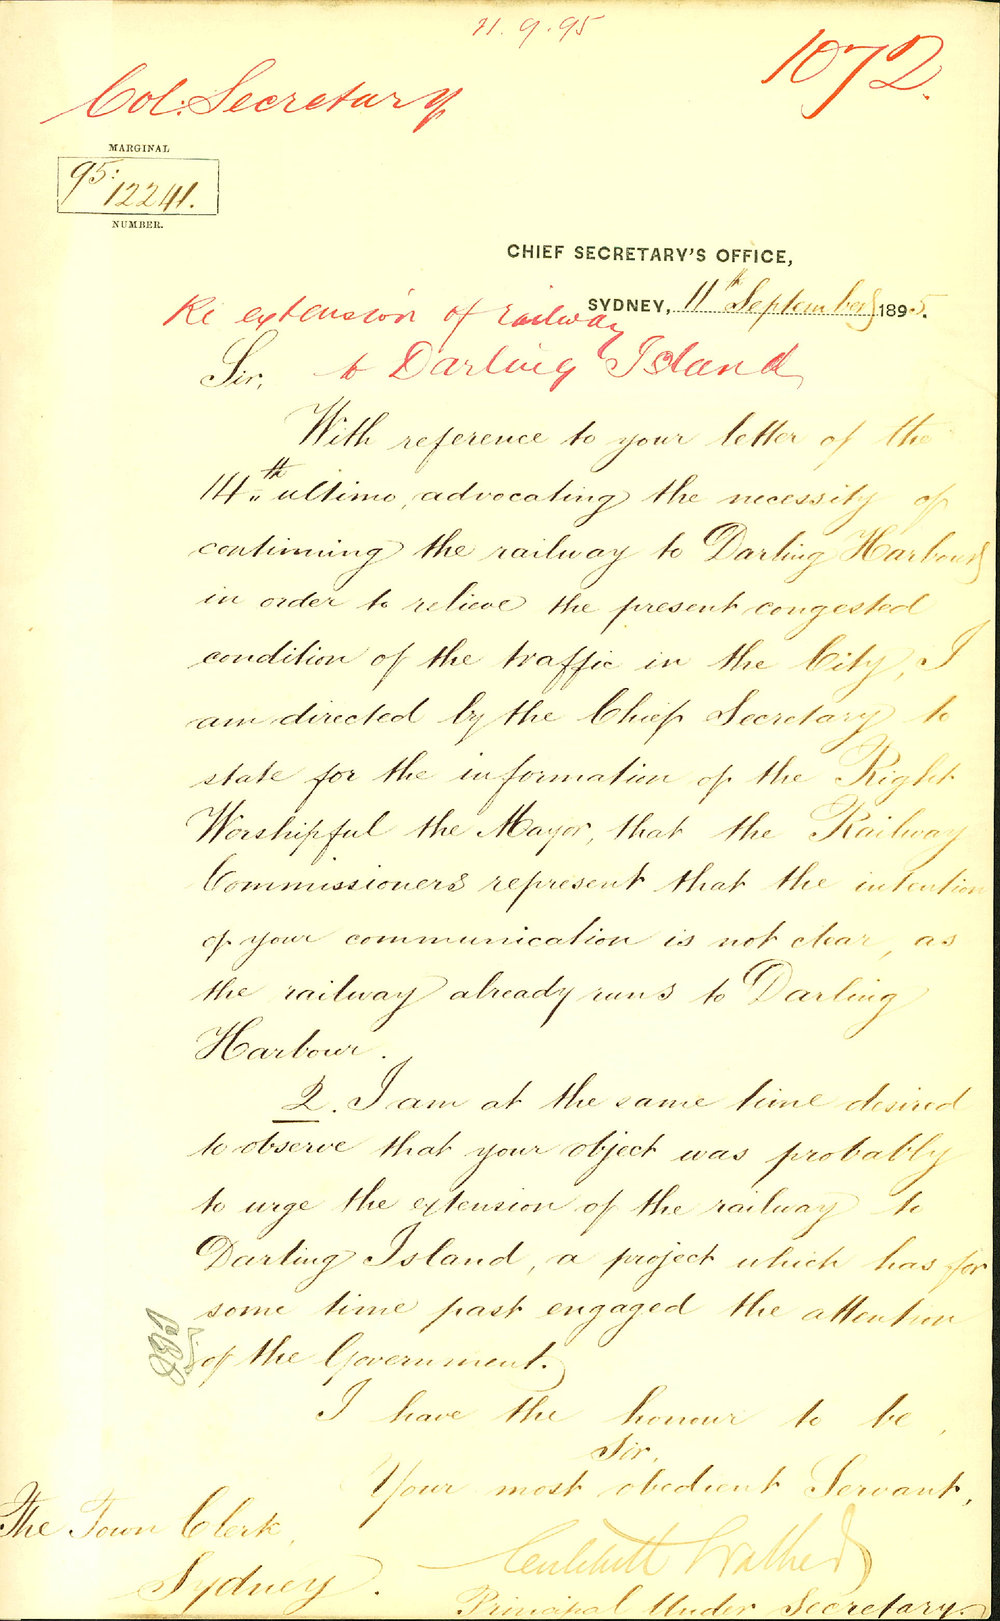 11.9.95
1072.
Col: Secretary
MARGINAL
95:
12241.
NUMBER.
CHIEF SECRETARY'S OFFICE,
SYDNEY, 11th September 1895.
Re extension of railway
to Darling Island
Sir,
With reference to your letter of the
14th ultimo, advocating the necessity of
continuing the railway to Darling Harbour
in order to relieve the present congested
condition of the traffic in the City, I
am directed by the Chief Secretary to
state for the information of the Right
Worshipful the Mayor, that the Railway
Commissioners represent that the intention
of your communication is not clear, as
the railway already runs to Darling
Harbour.
2. I am at the same time desired
to observe that your object was probably
to urge the extension of the railway to
Darling Island, a project which has for
some time past engaged the attention
of the Government.
I have the honour to be,
Sir,
Your most obedient Servant,
Critchett Walker
Principal Under Secretary
The Town Clerk,
Sydney.